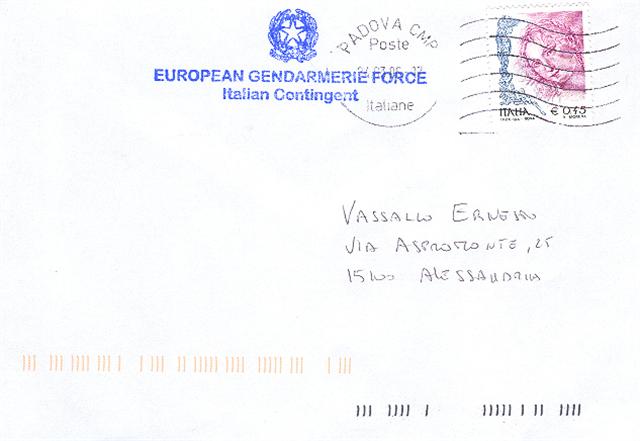 PADOVA CMP
Poste
Italiane
EUROPEAN GENDARMERIE FORCE
Italian Contingent
ITALIA € 0,45
VASSALLO ERNESTO
VIA ASPROMONTE, 25
15100 ALESSANDRIA